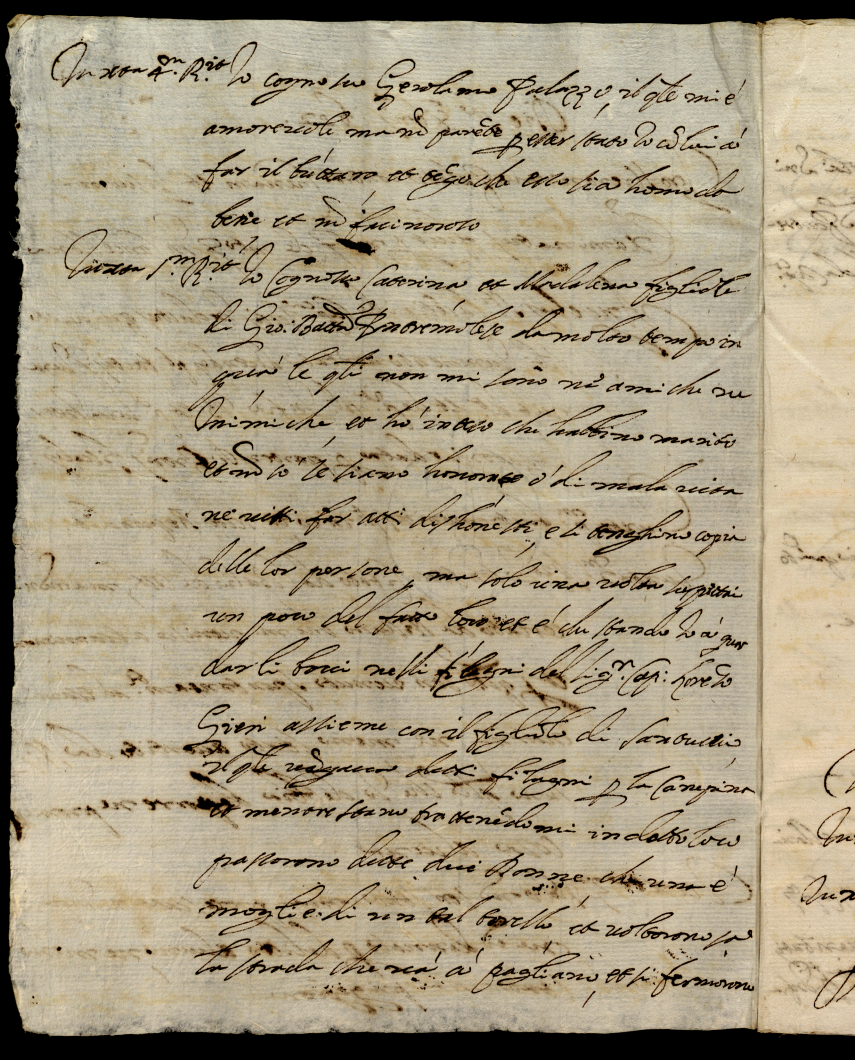 Iuxta 4.m R.it Io cognosco Gerolamo Palazzo, il qle mi é
amorevole ma nõ parẽte p esser stato Io cõ lui à
far il buttaro et tẽgo che esso sia homo da
bene et nõ facinoroso
Iuxta 5.m R.it Io Cognosco Caterina et Madalena figliole
di Gio: Batta Pontremolese da molto tempo in
quà le qli non mi sono nè amiche ne
Inimiche et hò inteso che habbino marito
et nõ so se siano honorate ò di mala vita
ne visti far atti dishonesti, e si tenghino copia
delle lor persone, ma solo una volta suspettai
un poco del fatto loro et é che stando Io à guar
dar li bovi nelli filagni del Sigr. Cap: Loreto
Gieri assieme con il figliolo di Santucci
il qle vãgava detti filagni p la Canepina
et mentre stavo trattenẽdomi in detto loco
passorono dette due Donne che una é
moglie di un tal Torello et voltorono pa
la strada che và à pagliano, et si fermorono